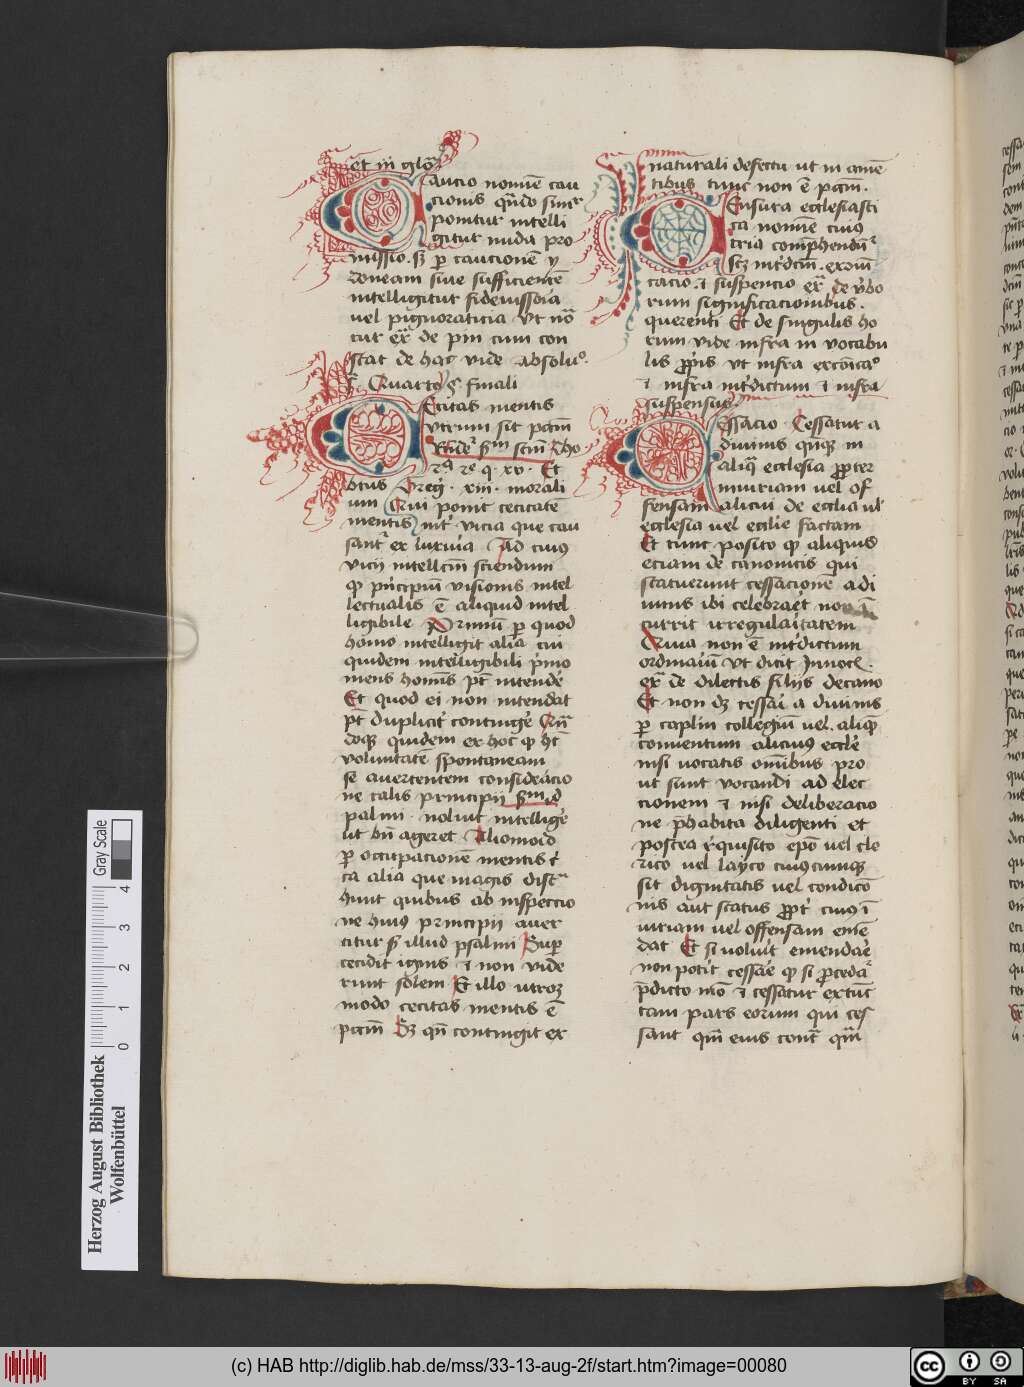 et in glō
Caucio nomine cau
cionis qn̄do simr
ponitur intelli
gitur nuda pro
missio. sz p cautionem y
doneam siue sufficientē
intelligitur fideiussoria
uel pignoraticia vt nō
tur exª de pin cum con
stat de hac vide Absoluº.
Quarto §. finali
Cecitas mentis
vtrum sit pctm̄
Rn̄deº sm scm̄ Tho
2ª 2e q. xv. Et
btus Greg. xiii. morali
um Qui ponit cecitatē
mentis int' vicia que cau
sant' ex luxuria Ad cuius
vicij intellctm̄ sciendum
qp pn̄cipiū visionis intel
lectualis ē aliquid intel
ligibile Primū p quod
homo intelligit alia cui
quidem intelligibili p̄mo
mens homis pt̄ intende
Et quod ei non intendat
pt̄ duplicit' continge Qn̄
doqz quidem ex hoc qp ht̄
voluntatē spontaneam
se auertentem consideracio
ne talis principii sm id
psalmi. noluit intellige
ut bn̄ ageret Aliomodo
p occupacionē mentis c'
ca alia que magis dist
hunt quibus ab inspectio
ne huius principii auer
titur sr illud psalmi Sup
cecidit ignis & non vide
runt solem Et illo utroqz
modo cecitas mentis ē
pctm̄ Sz qn̄ contingit ex
naturali defectu ut in amē
tibus tunc non ē pctm̄.
Censura ecclesiasti
ca nomine cuius
tria comp̄henduntr
scz int'dcm̄. excōi
cacio. & suspencio exª de v'bo
rum significacionibus.
querenti Et de singulis ho
rum vide infra in vocabu
lis pprijs vt infra excōicaº
& infra int'dictum & infra
suspensus.
Cessacio Cessatur a
diuinis qn̄qz in
aliqª ecclesia ppter
iniuriam uel of
fensam alicui de ecclia ul'
ecclesia uel ecclie factam
Et tunc posito qp aliquis
eciam de canonicis qui
statuerunt cessacionē a di
uinis ibi celebraēt non ī
currit irregularitatem
Quia non ē int'dictum
ordinariū vt dicit Innoc.
exª de dilectis filijs decano
Et non dz cessari a diuinis
p caplm collegiū uel. aliqp
conuentum alicuius eccle
nisi uocatis omībus pro
ut sunt vocandi ad elec
tionem & nisi deliberacio
ne p̄habita diligenti et
postea requisito epō uel cle
rico uel layco cuiuscumqz
sit dignitatis uel condicō
nis aut status ppt' cuius ī
iuriam uel offensam emē
dat Et si uoluit emendae
non potit cessare qp si pceda
p̄dicto mo & cessatur extunc
tam pars eorum qui ces
sant qm̄ eius contª qm̄
Herzog August Bibliothek
Wolfenbüttel
0 1 2 3 4
Gray Scale
(c) HAB http://diglib.hab.de/mss/33-13-aug-2f/start.htm?image=00080
cc BY SA